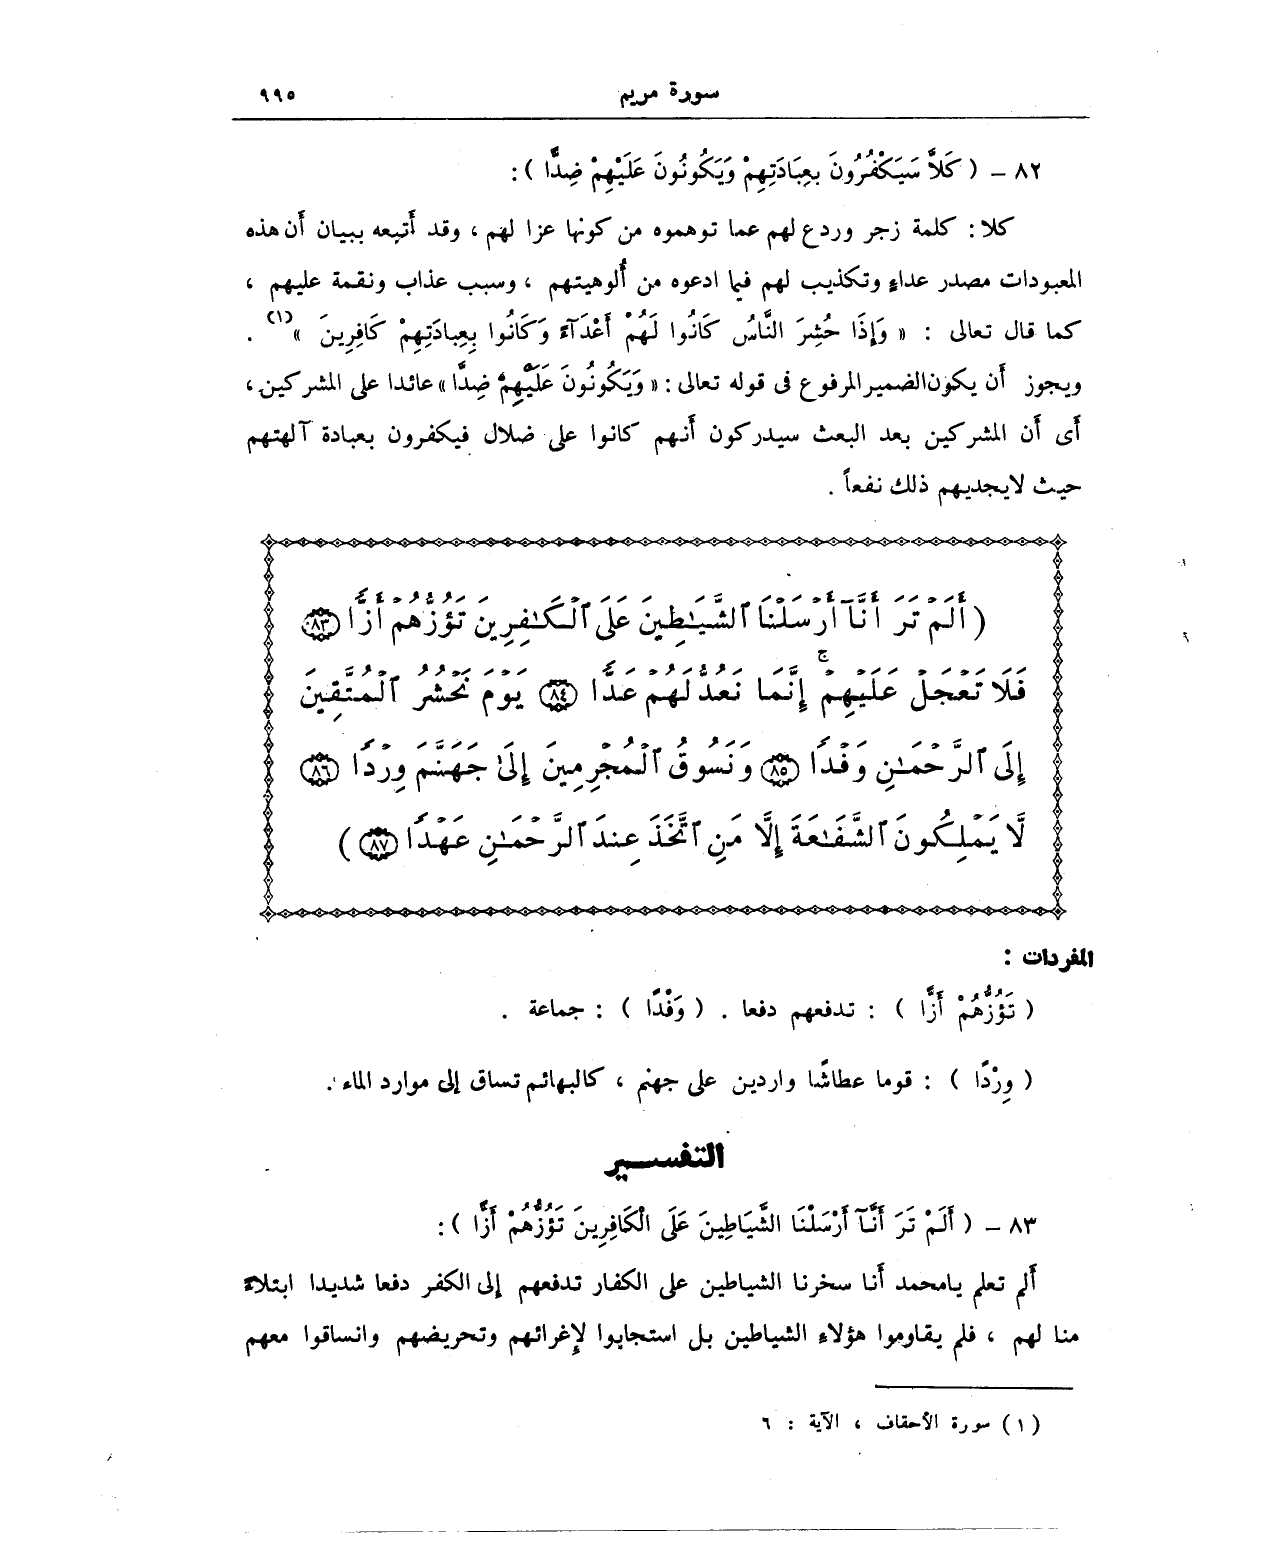 سورة مريم ٩٩٥
٨٢ – ( كَلاَّ سَيَكْفُرُونَ بِعِبَادَتِهِمْ وَيَكُونُونَ عَلَيْهِمْ ضِدًّا ) :
كلا : كلمة زجر وردع لهم عما توهموه من كونها عزا لهم ، وقد أتبعه ببيان أن هذه
المعبودات مصدر عداءٍ وتكذيب لهم فيما ادعوه من أُلوهيتهم ، وسبب عذاب ونقمة عليهم ،
كما قال تعالى : « وَإِذَا حُشِرَ النَّاسُ كَانُوا لَهُمْ أَعْدَآءً وَكَانُوا بِعِبَادَتِهِمْ كَافِرِينَ »(١) .
ويجوز أن يكون الضمير المرفوع فى قوله تعالى : « وَيَكُونُونَ عَلَيْهِمْ ضِدًّا » عائدا على المشركين ،
أى أن المشركين بعد البعث سيدركون أنهم كانوا على ضلال فيكفرون بعبادة آلهتهم
حيث لايجديهم ذلك نفعاً .
( أَلَمْ تَرَ أَنَّآ أَرْسَلْنَا ٱلشَّيَٰطِينَ عَلَى ٱلْكَٰفِرِينَ تَؤُزُّهُمْ أَزًّا ٨٣
فَلَا تَعْجَلْ عَلَيْهِمْ ۖ إِنَّمَا نَعُدُّ لَهُمْ عَدًّا ٨٤ يَوْمَ نَحْشُرُ ٱلْمُتَّقِينَ
إِلَى ٱلرَّحْمَٰنِ وَفْدًا ٨٥ وَنَسُوقُ ٱلْمُجْرِمِينَ إِلَىٰ جَهَنَّمَ وِرْدًا ٨٦
لَّا يَمْلِكُونَ ٱلشَّفَٰعَةَ إِلَّا مَنِ ٱتَّخَذَ عِندَ ٱلرَّحْمَٰنِ عَهْدًا ٨٧ )
المفردات :
( تَؤُزُّهُمْ أَزًّا ) : تدفعهم دفعا . ( وَفْدًا ) : جماعة .
( وِرْدًا ) : قوما عطاشًا واردين على جهنم ، كالبهائم تساق إلى موارد الماء .
التفسير
٨٣ – ( أَلَمْ تَرَ أَنَّآ أَرْسَلْنَا الشَّيَاطِينَ عَلَى الْكَافِرِينَ تَؤُزُّهُمْ أَزًّا ) :
ألم تعلم يامحمد أنا سخرنا الشياطين على الكفار تدفعهم إلى الكفر دفعا شديدا ابتلاءً
منا لهم ، فلم يقاوموا هؤلاء الشياطين بل استجابوا لإغرائهم وتحريضهم وانساقوا معهم
(١) سورة الأحقاف ، الآية : ٦